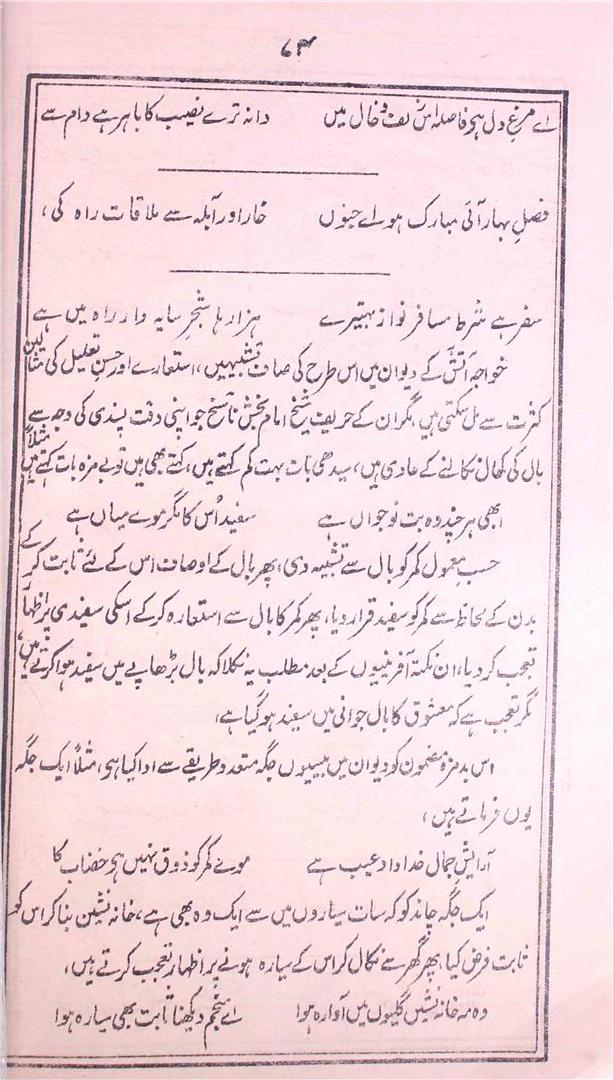 ۷۳
اے مرغِ دل ہی فاصلہ اس زلف و خال میں دانہ ترے نصیب کا باہر ہے دام سے
فصلِ بہار آئی مبارک ہو اے جنوں خار اور آبلہ سے ملاقات راہ کی،
سفر ہے شرط مسافر نواز بہتیرے ہزار ہا شجرِ سایہ دار راہ میں ہے
خواجہ آتش کے دیوان میں اس طرح کی صاف تشبیہیں، استعارے اور حسنِ تعلیل کی مثالیں
کثرت سے مل سکتی ہیں، مگر ان کے حریف شیخ امام بخش ناسخ جو اپنی دقت پسندی کی وجہ سے
بال کی کھال نکالنے کے عادی ہیں، سیدھی بات بہت کم کہتے ہیں، کہتے بھی ہیں تو بے مزہ بات کہتے ہیں مثلاً
ابھی ہر چند وہ بت نوجواں ہے سفید اُس کا مگر موے میاں ہے
حسب معمول کمر کو بال سے تشبیہ دی، پھر بال کے اوصاف اس کے لئے ثابت کر کے
بدن کے لحاظ سے کمر کو سفید قرار دیا، پھر کمر کا بال سے استعارہ کر کے اسکی سفیدی پر اظہار
تعجب کر دیا، ان نکتہ آفرینیوں کے بعد مطلب یہ نکلا کہ بال بڑھاپے میں سفید ہوا کرتے ہیں،
مگر تعجب ہے کہ معشوق کا بال جوانی میں سفید ہو گیا ہے،
اس بدمزہ مضمون کو دیوان میں بیسیوں جگہ متعدد طریقے سے ادا کیا ہی، مثلاً ایک جگہ
یوں فرماتے ہیں،
آرایشِ جمال خداداد عیب ہے موے کمر کو ذوق نہیں ہی خضاب کا
ایک جگہ چاند کو کہ سات سیاروں میں سے ایک وہ بھی ہے، خانہ نشین بنا کر اس کو
ثابت فرض کیا، پھر گھر سے نکال کر اس کے سیارہ ہونے پر اظہار تعجب کرتے ہیں،
وہ مہ خانہ نشیں گلیوں میں آوارہ ہوا اے منجم دیکھنا ثابت بھی سیارہ ہوا